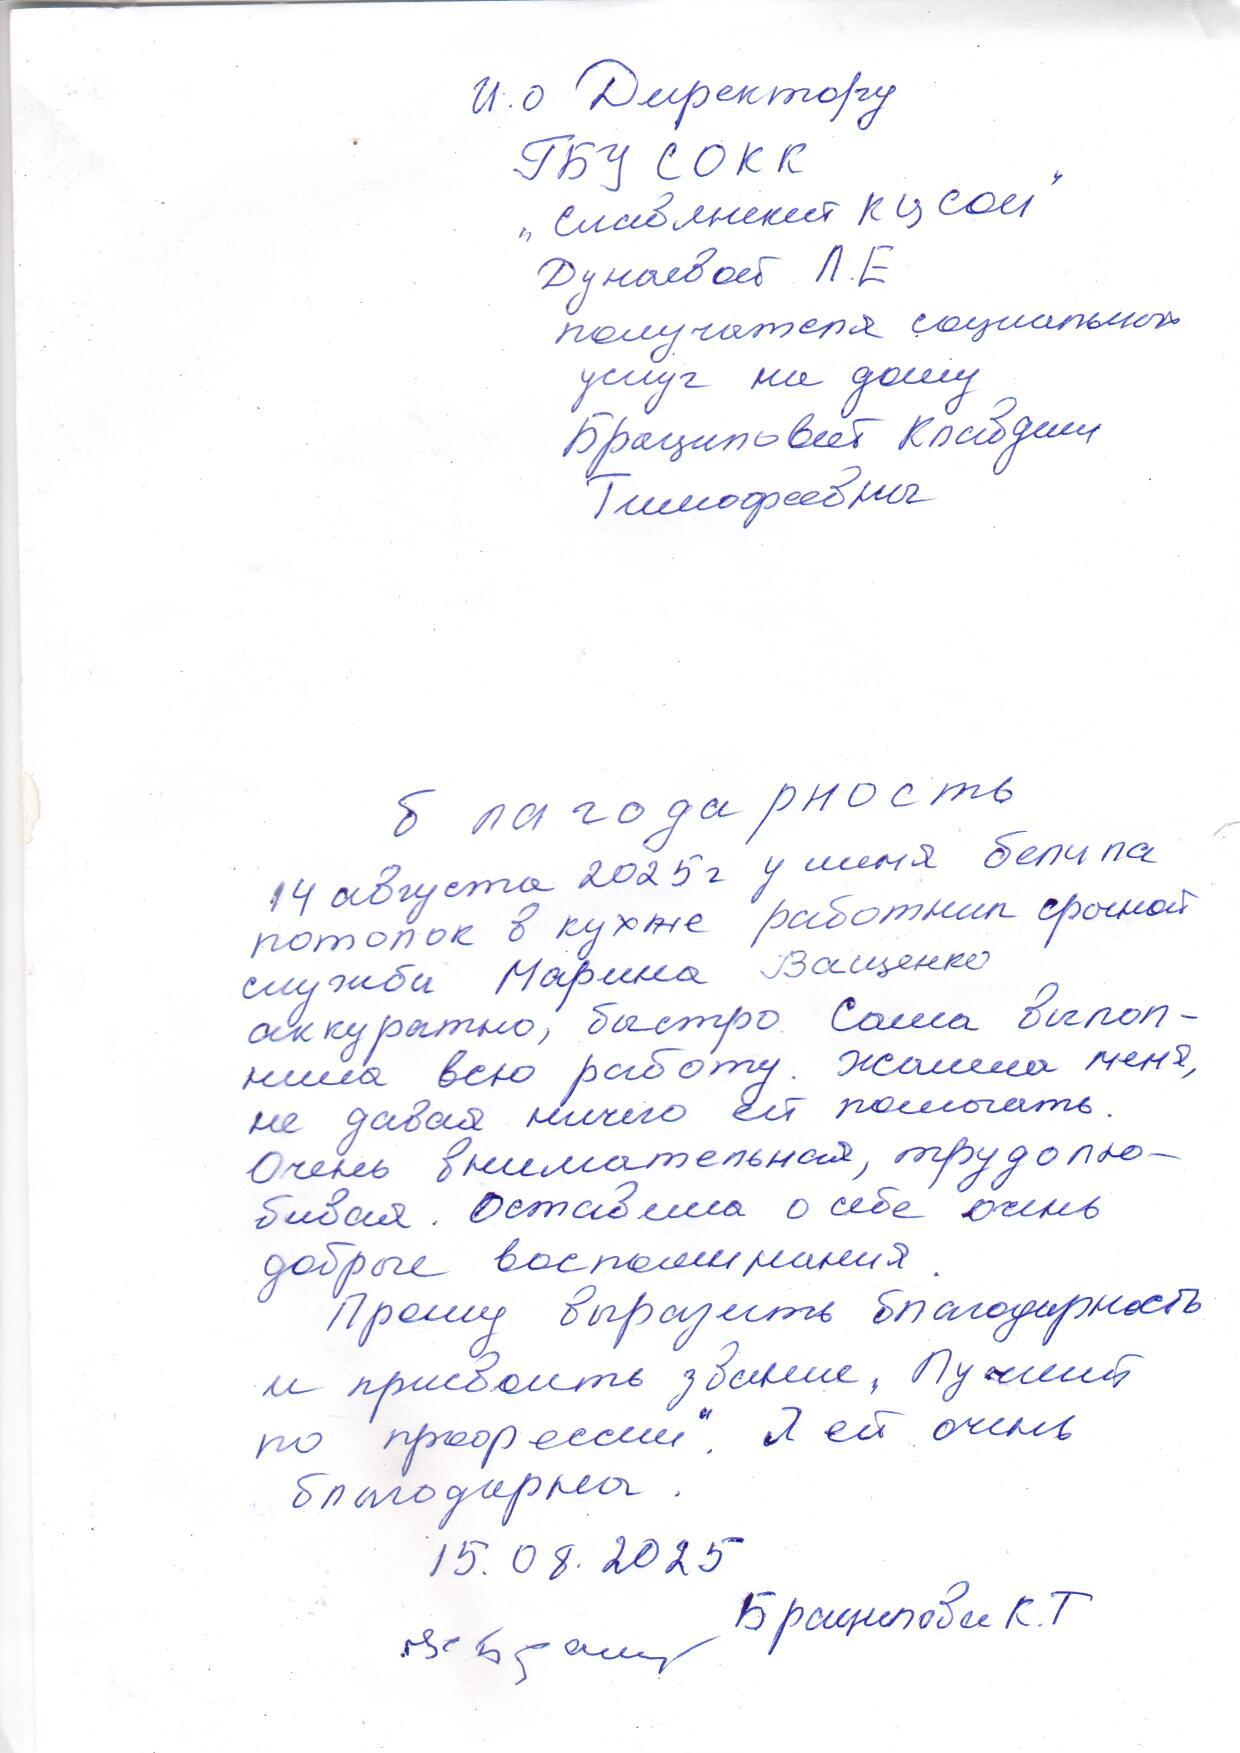 И.о Директору
ГБУ СОКК
„Славянский КЦСОН"
Дунаевой Л.Е
получателя социальных
услуг на дому
Клавдии
Тимофеевны
благодарность
14 августа 2025г у меня белила
потолок в кухне работник срочной
службы Марина Ващенко
аккуратно, быстро. Сама выпол-
нила всю работу. Жалела меня,
не давая ничего ей помогать.
Очень внимательная, трудолю-
бивая. Оставила о себе очень
добрые воспоминания.
Прошу выразить благодарность
и присвоить звание „Лучший
по профессии". Я ей очень
благодарна.
15.08.2025
К.Т